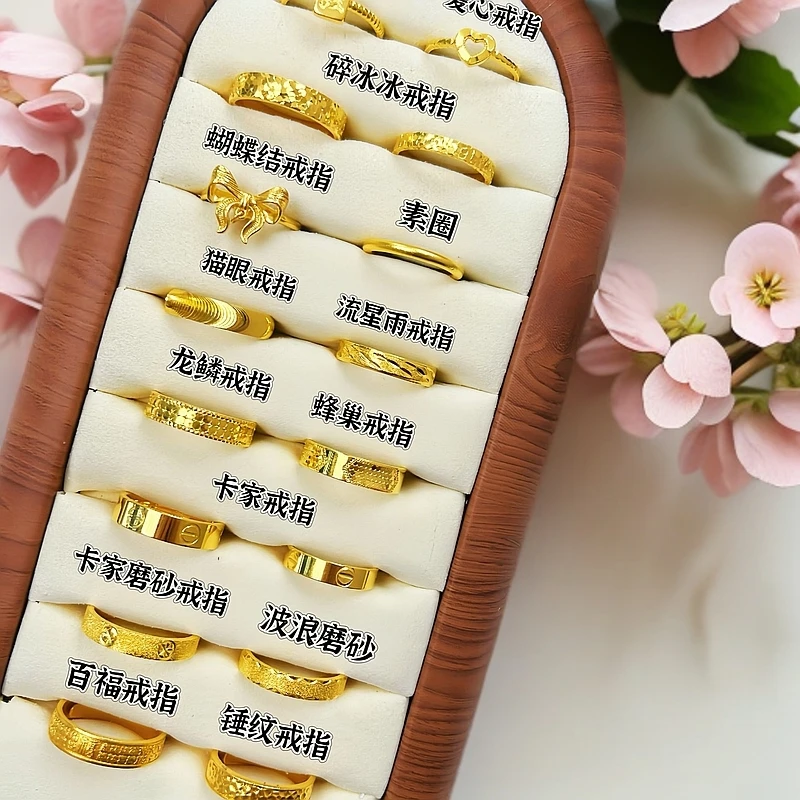 爱心戒指
碎冰冰戒指
蝴蝶结戒指
素圈
猫眼戒指
流星雨戒指
龙鳞戒指
蜂巢戒指
卡家戒指
卡家磨砂戒指
波浪磨砂
百福戒指
锤纹戒指